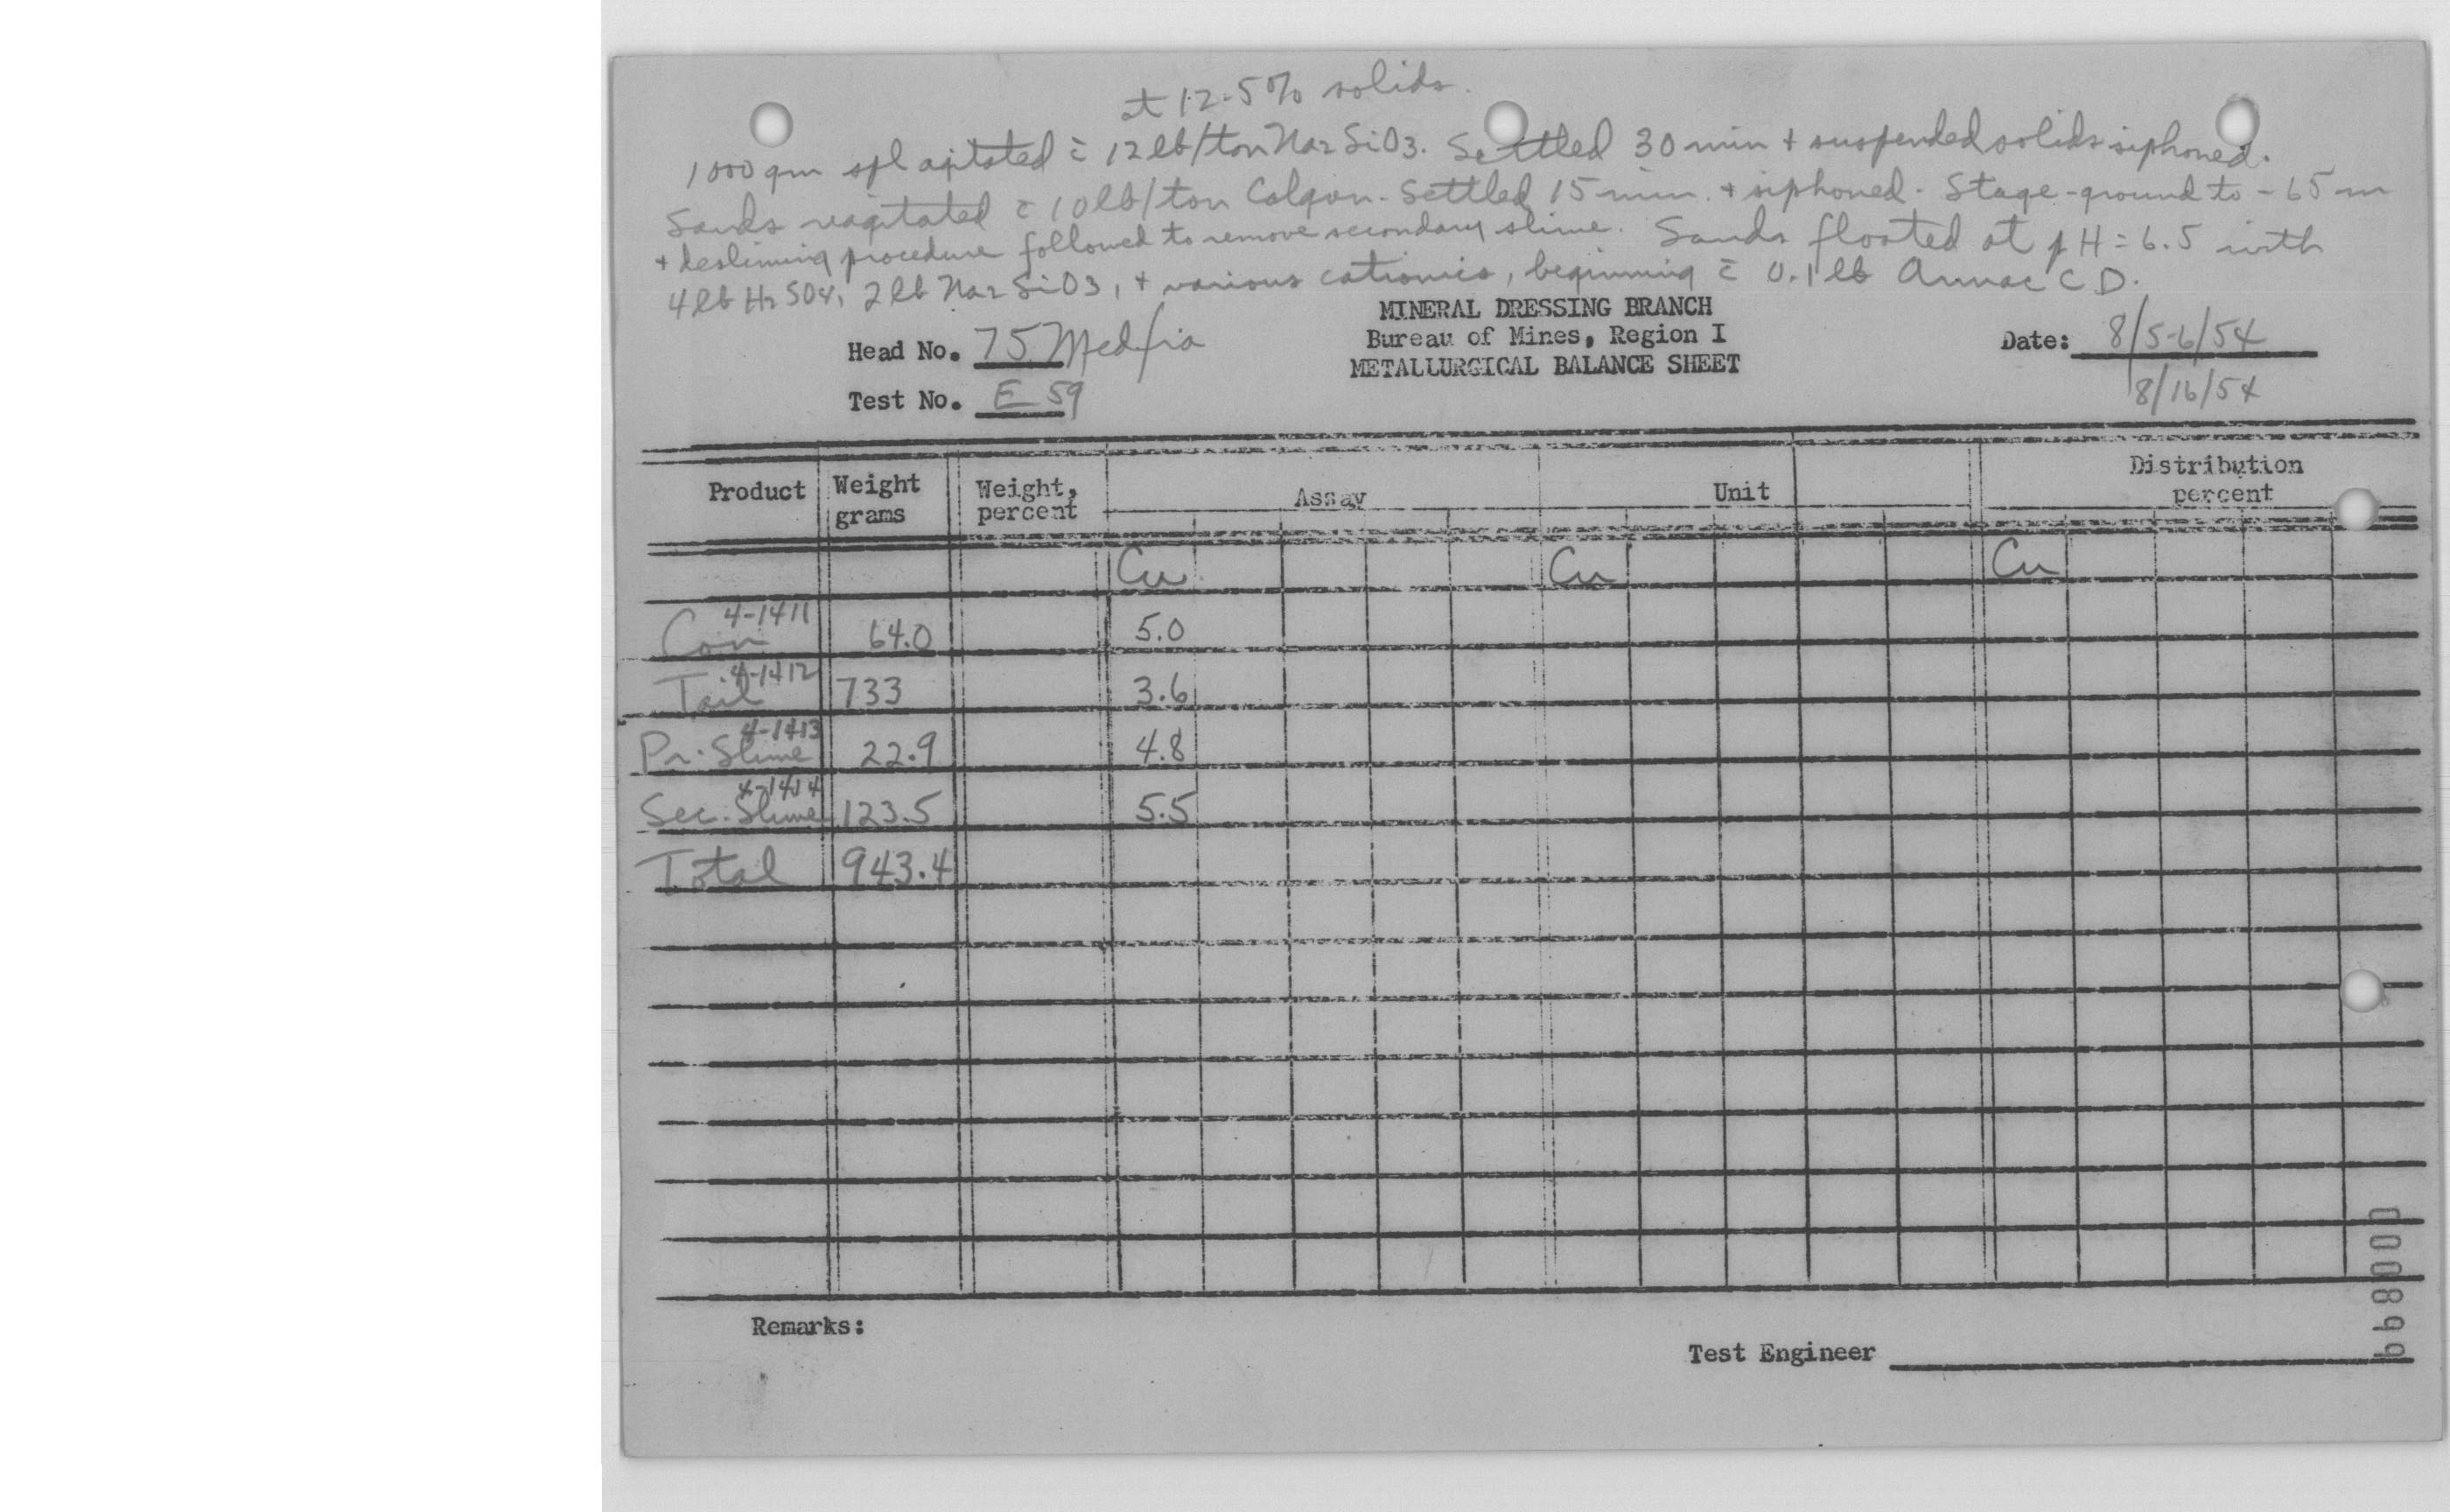 at 12.5% solids.
1000 gm spl agitated c̄ 12 lb/ton Na2SiO3. Settled 30 min + suspended solids siphoned.
Sands reagitated c̄ 10 lb/ton Calgon. Settled 15 min. + siphoned. Stage-ground to -65 m
+ desliming procedure followed to remove secondary slime. Sands floated at pH = 6.5 with
4 lb H2SO4, 2 lb Na2SiO3, + various cationics, beginning c̄ 0.1 lb Armac CD.
MINERAL DRESSING BRANCH
Bureau of Mines, Region I
METALLURGICAL BALANCE SHEET
Head No. 75
Test No. E 59
Date: 8/5-6/54
8/16/54
Product Weight grams Weight, percent Assay Unit Distribution percent
Cu Cu Cu
4-1411
Con 64.0 5.0
4-1412
Tail 733 3.6
4-1413
Pr. Slime 22.9 4.8
4-1414
Sec. Slime 123.5 5.5
Total 943.4
Remarks:
Test Engineer
000899